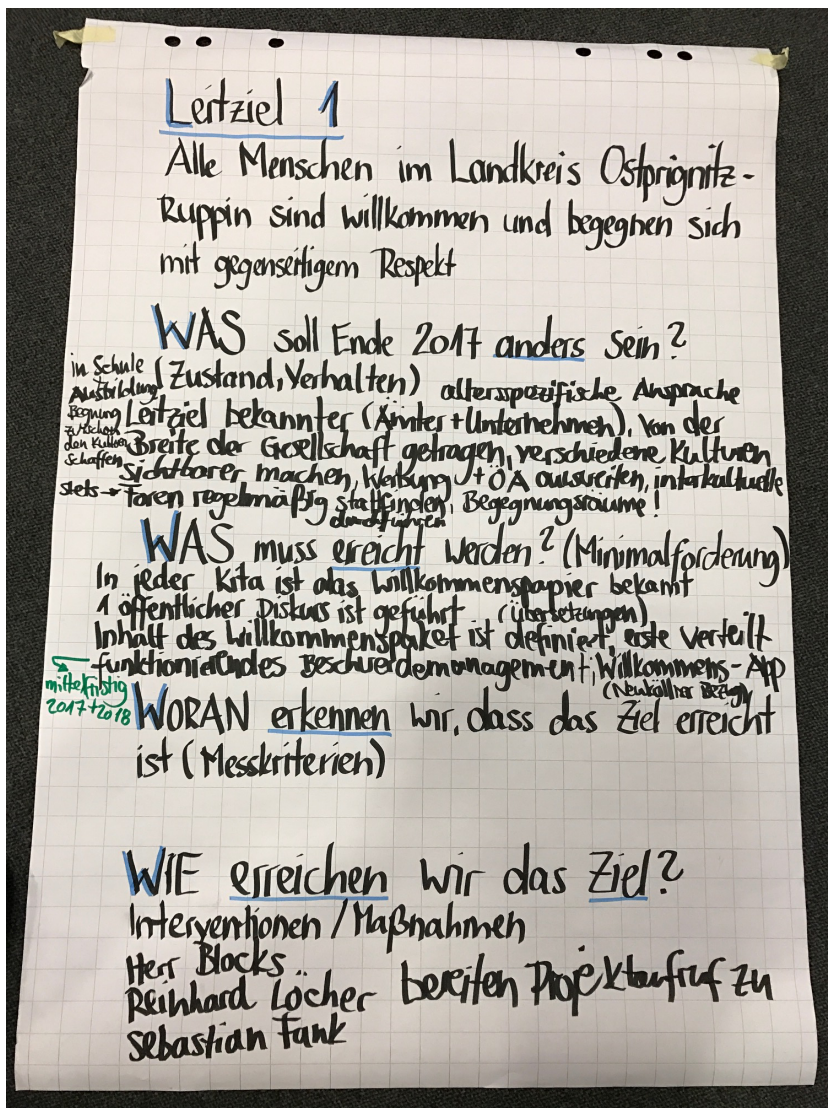 Leitziel 1
Alle Menschen im Landkreis Ostprignitz-
Ruppin sind willkommen und begegnen sich
mit gegenseitigem Respekt
WAS soll Ende 2017 anders sein?
(Zustand, Verhalten) altersspezifische Ansprache
in Schule
Ausbildung
Begnung
zwischen
den Kulturen
schaffen
Leitziel bekannter (Ämter + Unternehmen), von der
Breite der Gesellschaft getragen, verschiedene Kulturen
sichtbarer machen, Werbung + ÖA ausweiten, interkulturelle
stets → Foren regelmäßig stattfinden, Begegnungsräume!
durchführen
WAS muss ereicht werden? (Minimalforderung)
In jeder Kita ist das Willkommenspapier bekannt
1 öffentlicher Diskurs ist geführt (Übersetzungen)
Inhalt des Willkommenspaket ist definiert, erste verteilt
funktionierendes Beschwerdemanagement, Willkommens-App
(Neuköllner Bezug)
mittelfristig
2017+2018
WORAN erkennen wir, dass das Ziel erreicht
ist (Messkriterien)
WIE erreichen wir das Ziel?
Interventionen / Maßnahmen
Herr Blocks
Reinhard Löcher bereiten Projektaufruf zu
Sebastian Fank